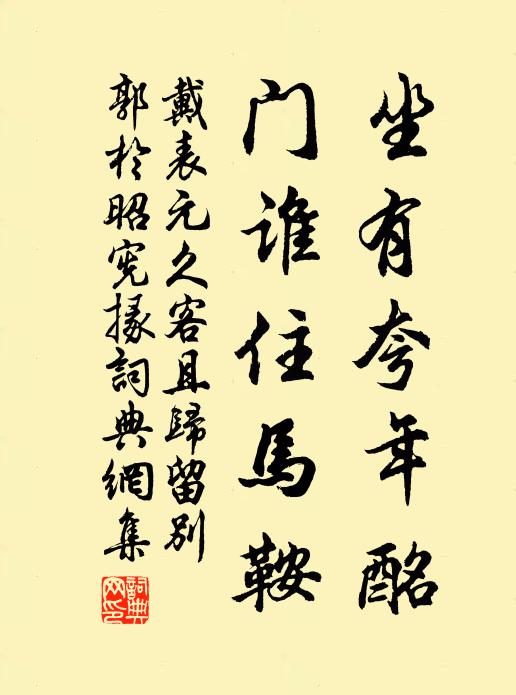 坐有夸年酩
门谁住馬鞍
戴表元久客且歸留別
郭於昭寃掾詞典網集
詞典网印